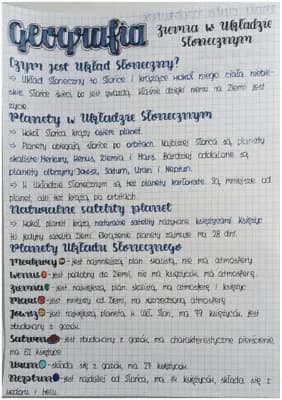 Geografia Ziemia w Układzie Słonecznym
Czym jest Układ Słoneczny?
⇒ Układ Słoneczny to Słońce i krążące wokół niego ciała niebieskie. Słońce świeci, bo jest gwiazdą. Właśnie dzięki niemu na Ziemi jest
życie.
Planety w Układzie Słonecznym
⇒ Wokół Słońca krąży osiem planet.
⇒ Planety obiegają słońce po orbitach. Najbliżej Słońca są planety
skaliste Merkury, Wenus, Ziemia i Mars. Bardziej oddalone są
planety olbrzymy Jowisz, Saturn, Uran i Neptun.
⇒ W Układzie Słonecznym są też planety karłowate. Są mniejsze od
planet, ale też krążą po orbitach.
Naturalne satelity planet
⇒ Wokół planet krążą naturalne satelity nazywane księżycami. Księżyc
to jedyny satelita Ziemi. Okrążenie planety zajmuje mu 28 dni.
Planety Układu Słonecznego
Merkury - jest najmniejszą plan. skalistą, nie ma atmosfery
Wenus - jest podobny do Ziemi, nie ma księżyców, ma atmosferę.
Ziemia - jest największą plan. skalistą, ma atmosferę i księżyc
Mars - jest mniejszy od Ziemi, ma rozrzedzoną atmosferę
Jowisz - jest największą planetą w Ukł. Słon., ma 79 księżyców, jest
zbudowany z gazów.
Saturn - jest zbudowany z gazów, ma charakterystyczne pierścienie,
ma 62 księżyce
Uran - składa się z gazów, ma 27 księżyców.
Neptun - jest najdalej od Słońca, ma 14 księżyców, składa się z
wodoru i helu.